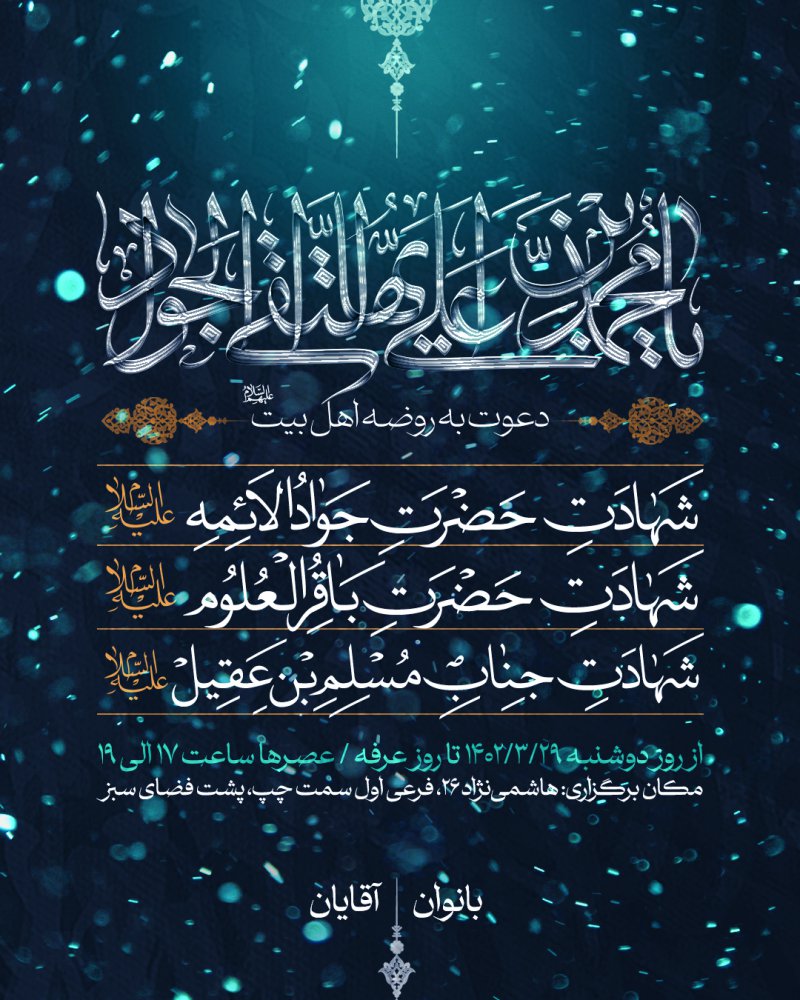 یا محمد بن علی ایها التقی الجواد
دعوت به روضه اهل بیت علیهم السلام
شَهادَتِ حَضْرَتِ جَوادُالاَئِمِه علیه السّلام
شَهادَتِ حَضْرَتِ باقِرُالْعُلُوم علیه السّلام
شَهادَتِ جنابِ مُسْلِمِ بْنِ عَقِیلْ علیه السّلام
از روز دوشنبه ۱۴۰۲/۳/۲۹ تا روز عرفه / عصرها ساعت ۱۷ الی ۱۹
مکان برگزاری: هاشمی‌نژاد ۲۶، فرعی اول سمت چپ، پشت فضای سبز
بانوان | آقایان